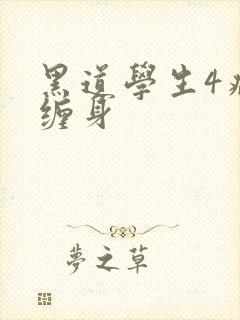 黑道學生4
缠身
夢之草